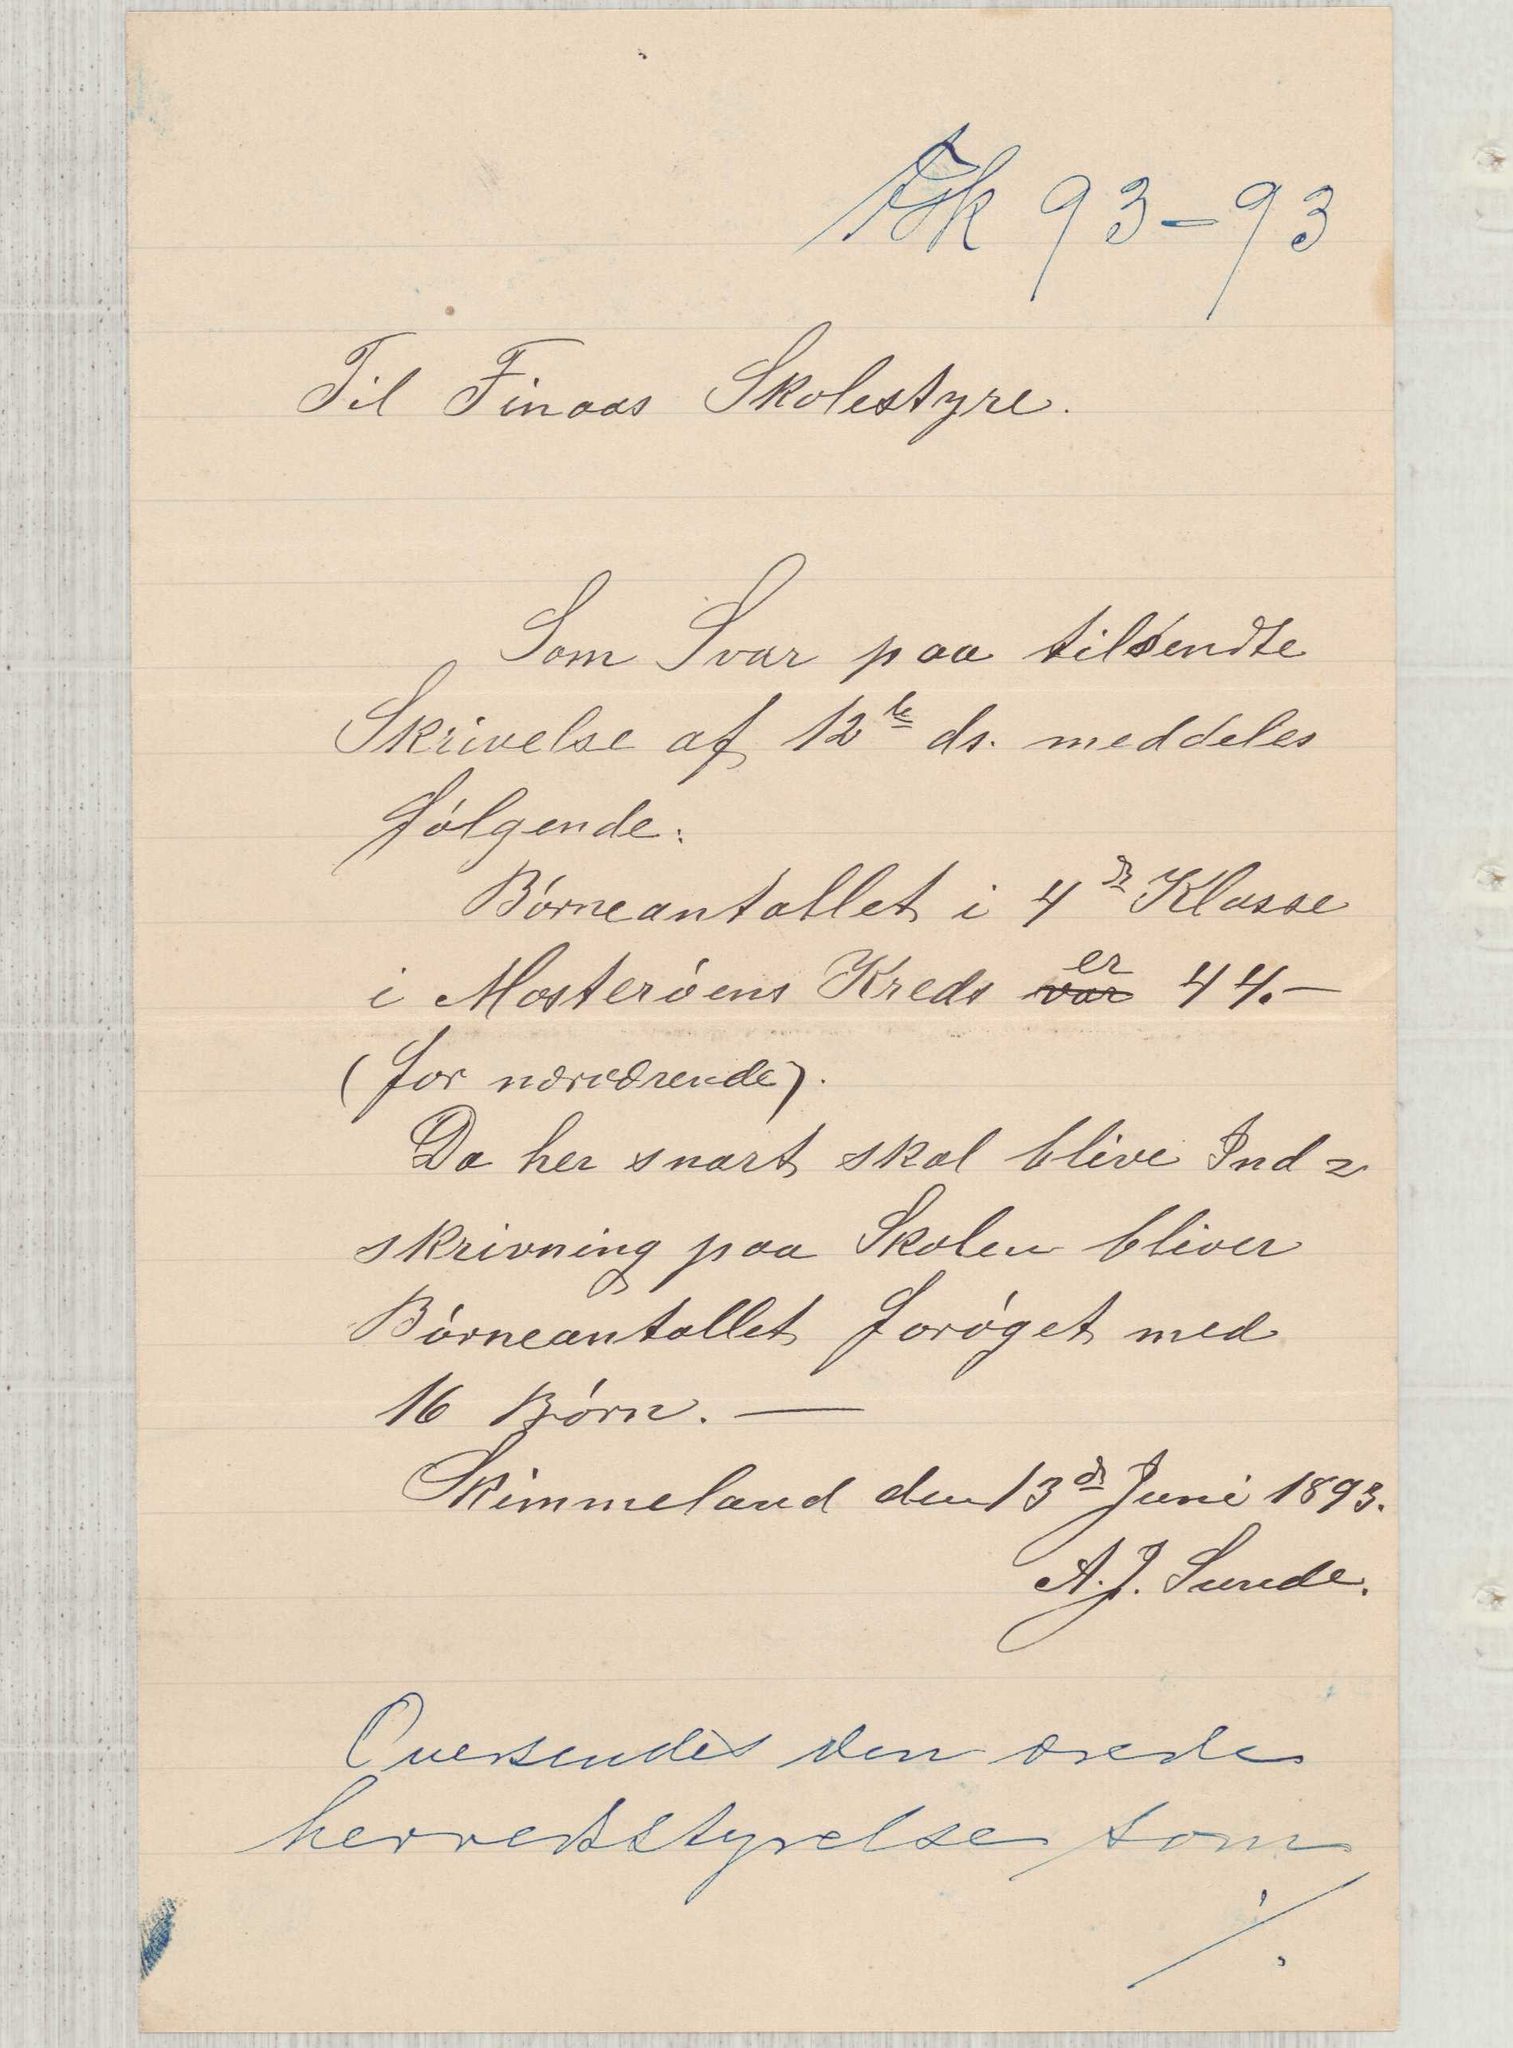 Fsk 93-93
Til Finaas Skolestyre.
Som Svar paa tilsendte
Skrivelse af 12te ds. meddeles
følgende:
Børneantallet i 4de Klasse
i Mosterøens Kreds var er 44.—
(for nærværende).
Da her snart skal blive Ind=
skrivning paa Skolen bliver
Børneantallet forøget med
16 Børn. —
Skimmeland den 13de Juni 1893.
A. J. Sunde.
Oversendes den ærede
herredsstyrelse som
./.